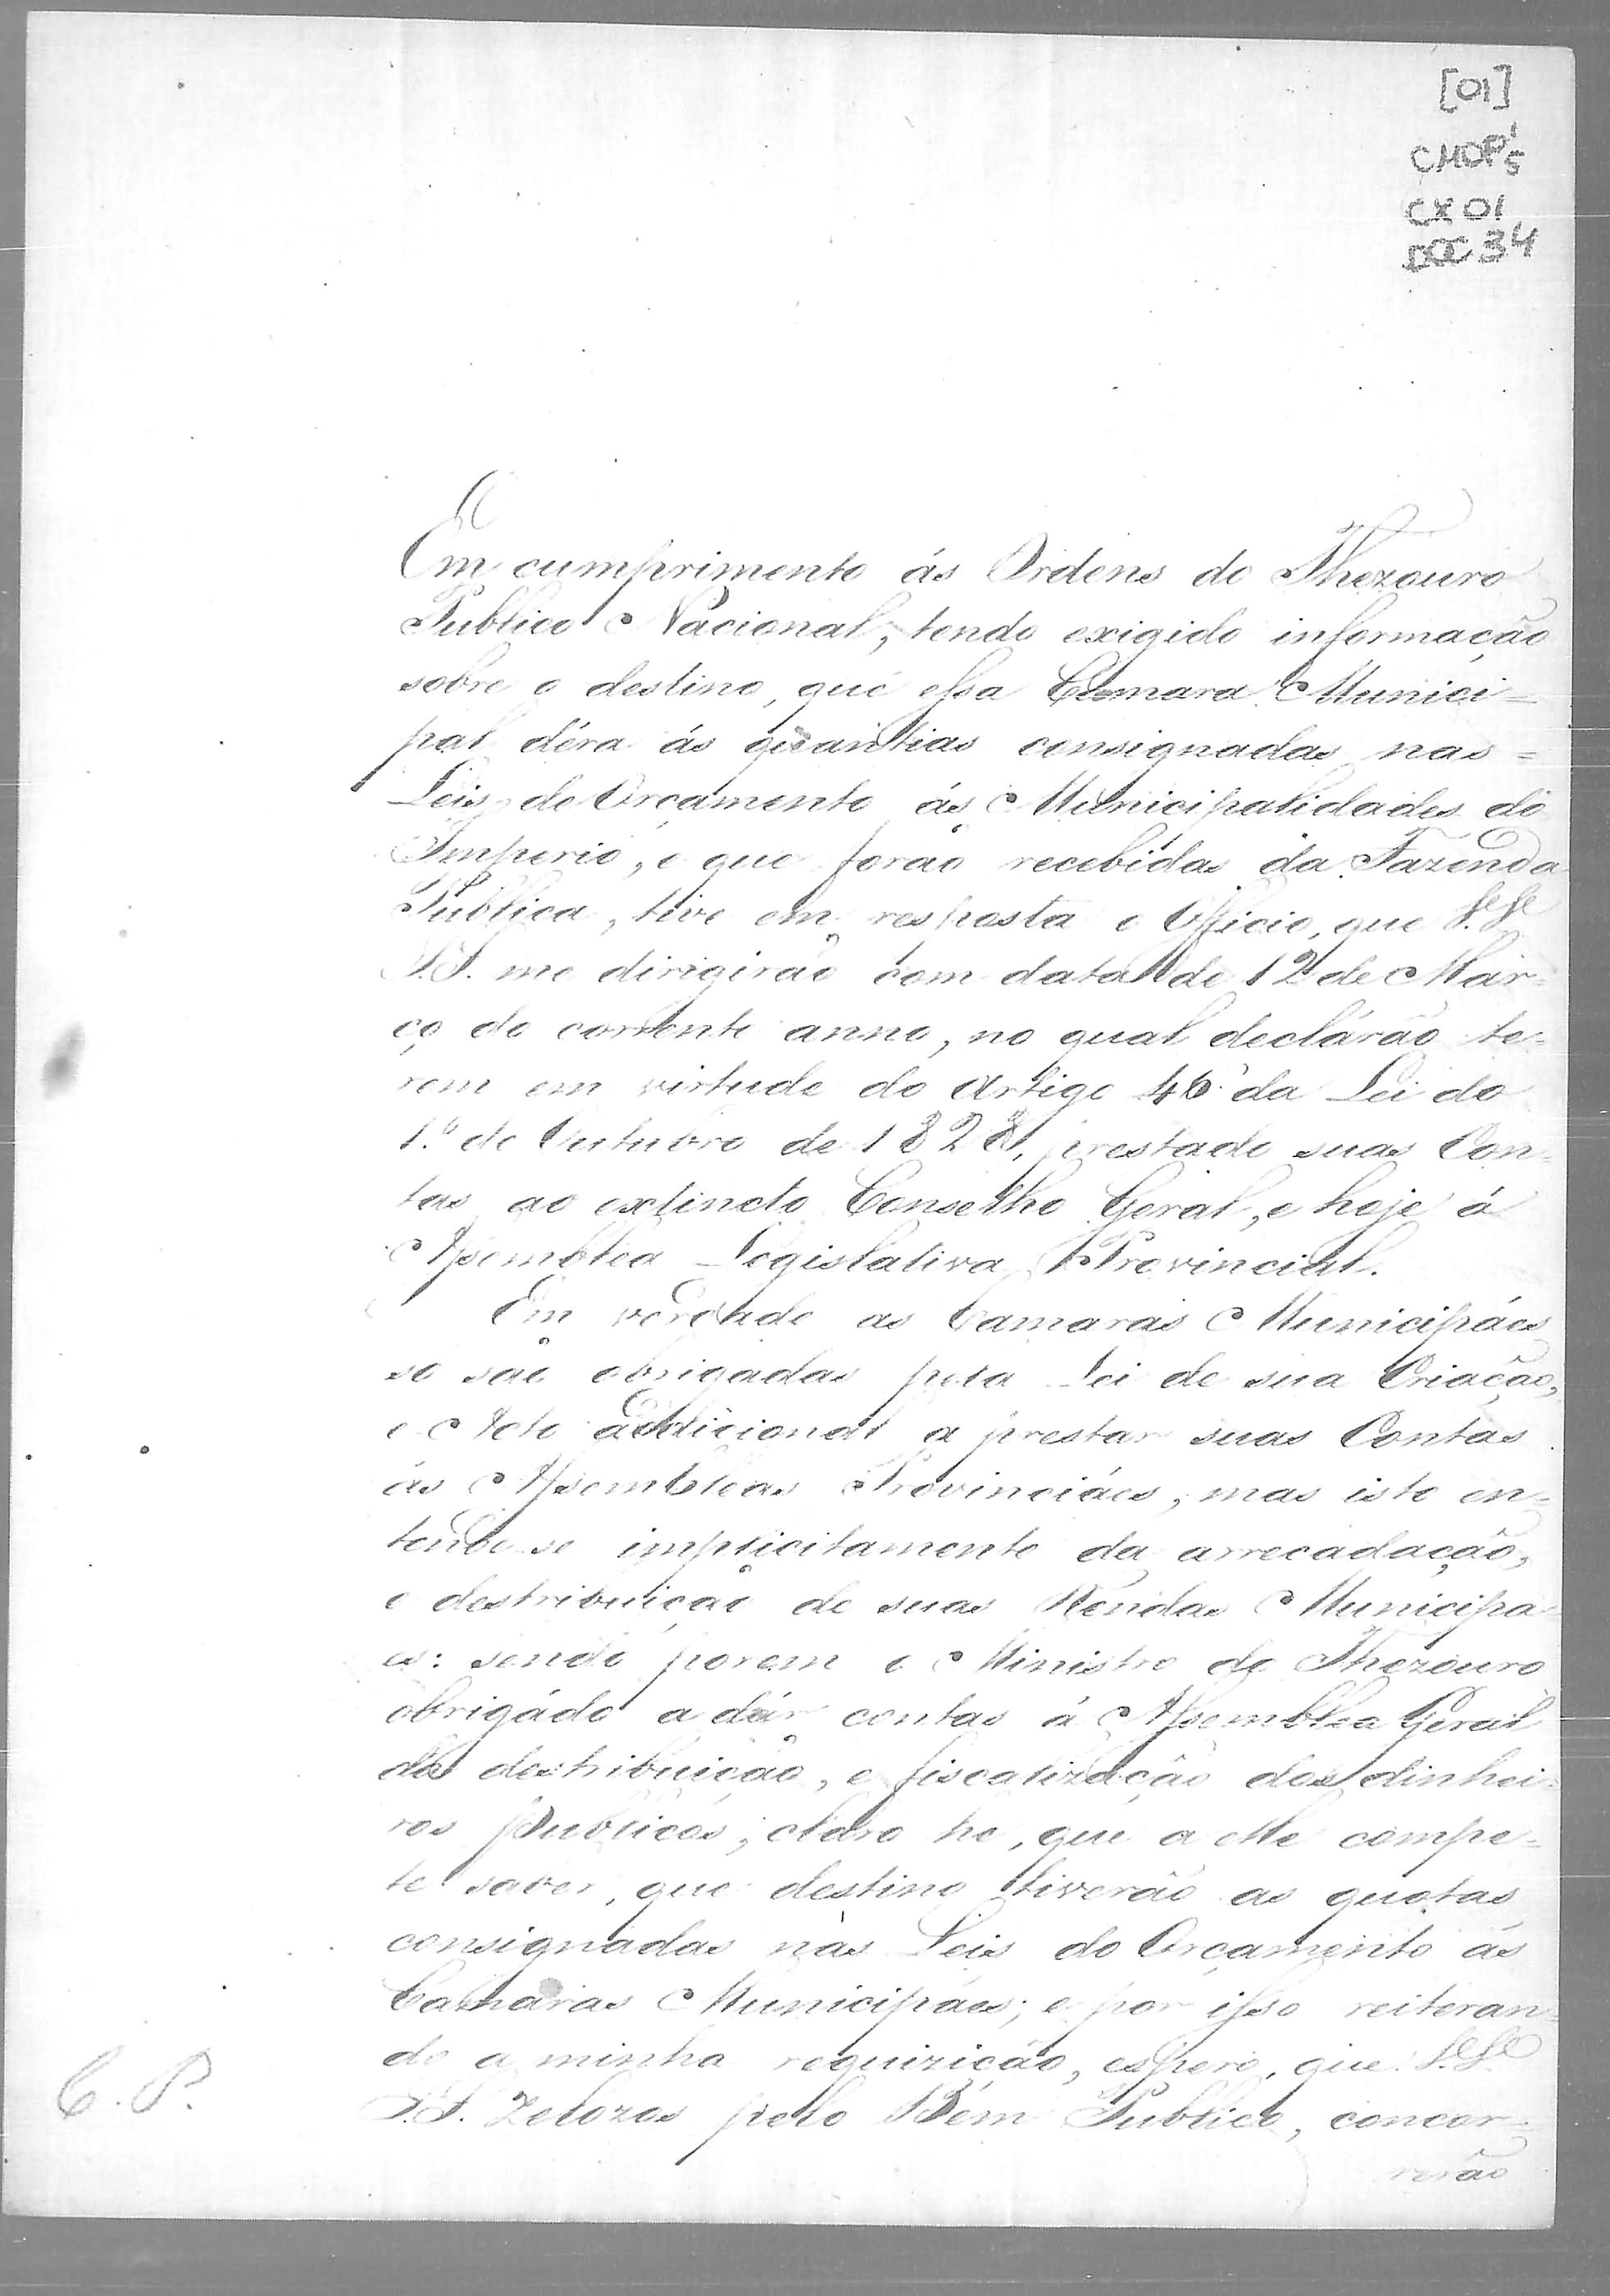 [01]
CMOP'S
CX 01
DOC 34
Em cumprimento ás Ordens do Thezouro
Publico Nacional, tendo exigido informação
sobre o destino, que essa Camara Munici=
pal déra ás quantias consignadas nas=
Leis do Orçamento ás Municipalidades do
Imperio, e que forão recebidas da Fazenda
Publica, tive em resposta o Officio, que
S.S. me dirigirão com data de 12 de Mar=
ço do corrente anno, no qual declárão te=
rem em virtude do Artigo 46 da Lei do
1.º de Outubro de 1828, prestado suas Con=
tas ao extincto Conselho Geral, e hoje á
Assemblea Legislativa Provincial.
Em verdade as Camaras Municipáes
se são obrigadas pela Lei de sua Criação,
e Acto addicional a prestar suas Contas
ás Assembleas Provinciáes, mas isto en=
tende se implicitamente da arrecadação,
e destribuição de suas Rendas Municipa
es: sendo porem o Ministro do Thezouro
obrigádo a dár contas á Assemblea Geral
da destribuição, e fiscalização dos dinhei=
ros Publicos; claro he, que a elle compe=
te saber, que destino tiverão as quotas
consignadas nas Leis do Orçamento ás
Camaras Municipáes; e por isso reiteran=
do a minha requizição, espero, que
S.S. Zelozos pelo Bém Publico, concor=
rerão
C. P.